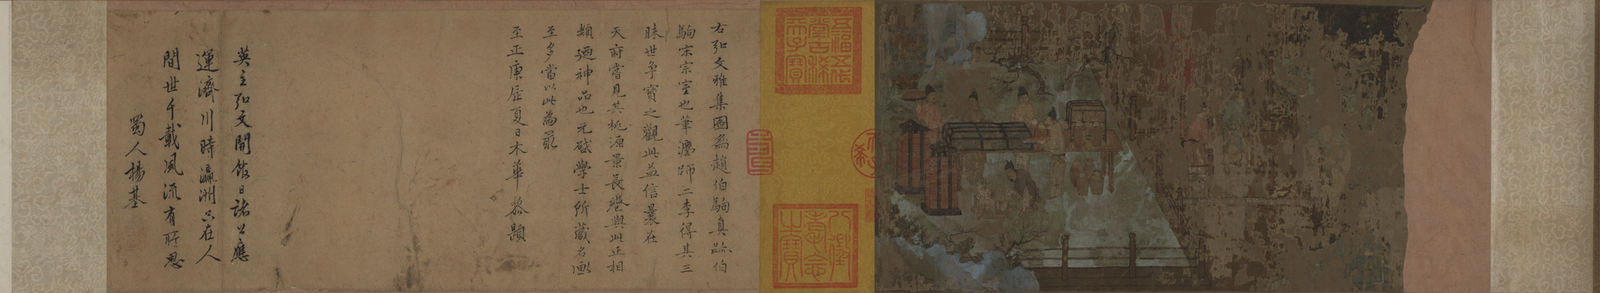 右弘文雅集圖為趙伯駒真跡伯
駒宋宗室也筆遵師二李得其三
昧世爭寶之觀此益信曩在
天府嘗見其桃源景長卷與此正相
類廼神品也元誠學士所藏名画
至多當以此為最
至正庚辰夏日木華黎題
英主弘文開館日諸公應
運濟川時瀛洲只在人
間世千載風流有所思
蜀人楊基
五福五代堂古稀天子寶
八徵耄念之寶